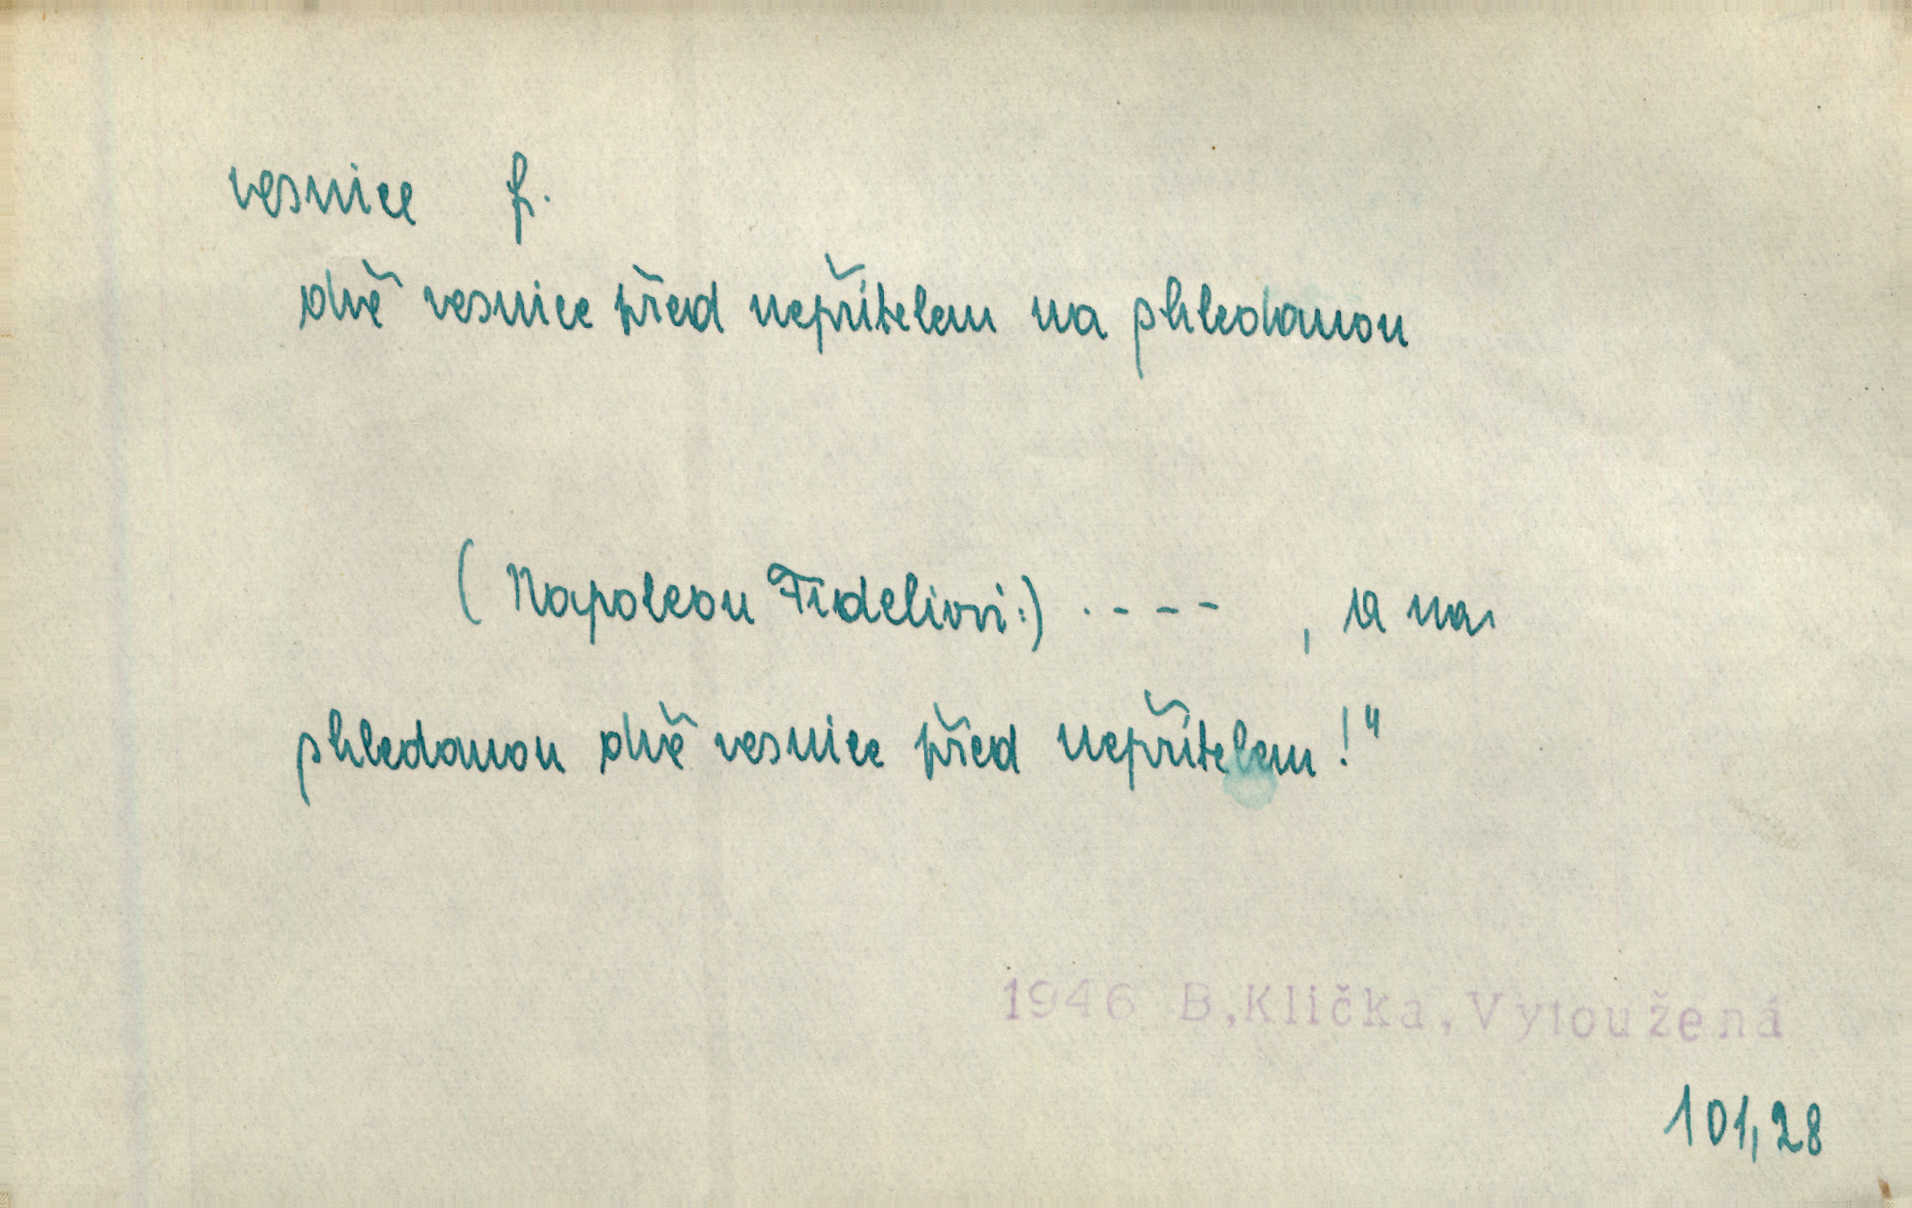 vesnice f.
dvě vesnice před nepřítelem na shledanou
(Napoleon Fidelivri:) . - - - , a na
shledanou dvě vesnice před nepřítelem!"
1946 B,Klička,Vytoužená
101,28